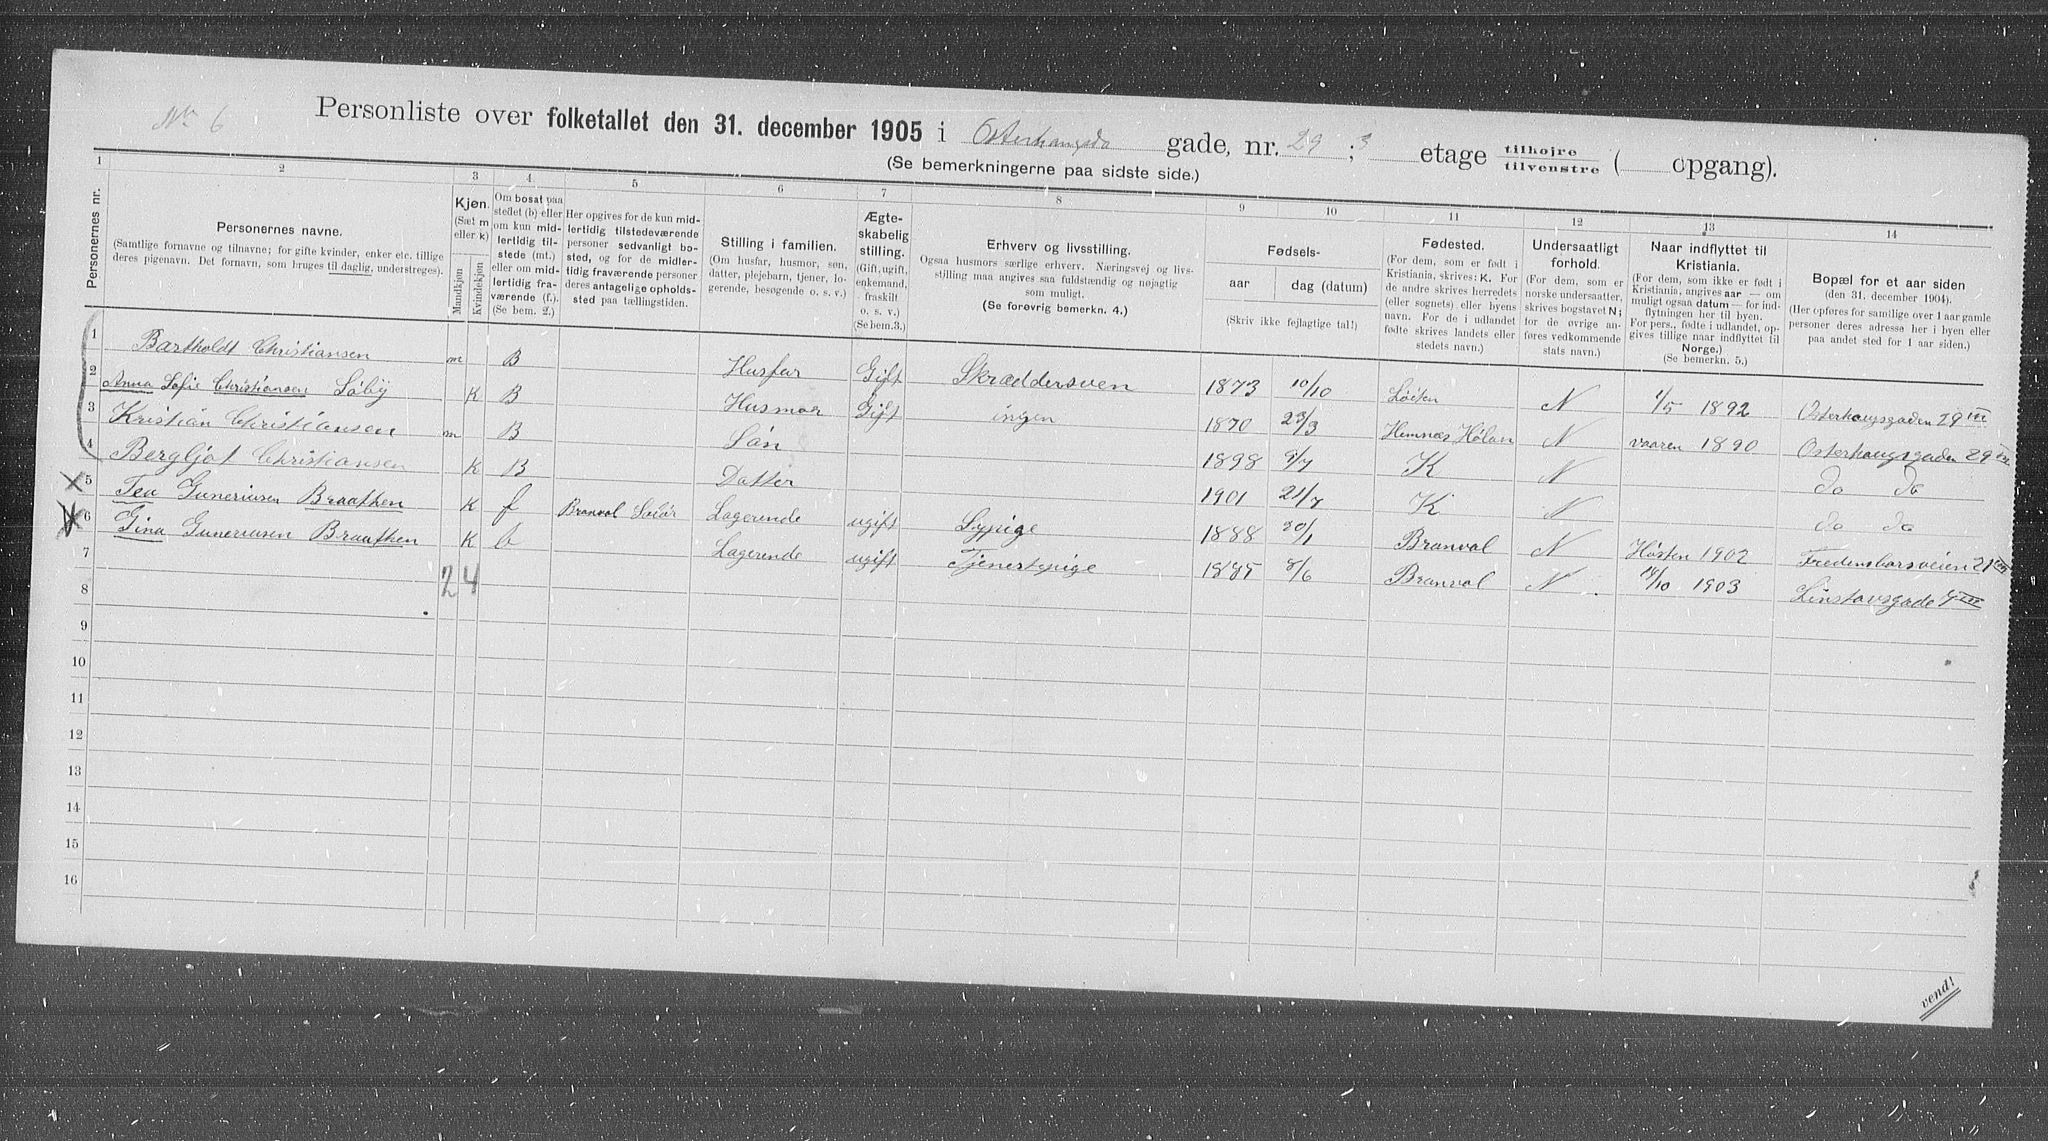 No 6
Personliste over folketallet den 31. december 1905 i Osterhausgd gade, nr. 29 ; 3 etage tilhøjre tilvenstre ( opgang).
(Se bemerkningerne paa sidste side.)
1 2 3 4 5 6 7 8 9 10 11 12 13 14
Personernes nr.
Personernes navne.
(Samtlige fornavne og tilnavne; for gifte kvinder, enker etc. tillige
deres pigenavn. Det fornavn, som bruges til daglig, understreges).
Kjøn.
(Sæt m
eller k)
Mandkjøn
Kvindekjøn
Om bosat paa
stedet (b) eller
om kun mid-
lertidig til-
stede (mt.)
eller om mid-
lertidig fra-
værende (f.).
(Se bem. 2.)
Her opgives for de kun mid-
lertidig tilstedeværende
personer sedvanligt bo-
sted, og for de midler-
tidig fraværende personer
deres antagelige opholds-
sted paa tællingstiden.
Stilling i familien.
(Om husfar, husmor, søn,
datter, plejebarn, tjener, lo-
gerende, besøgende o. s. v.)
Ægte-
skabelig
stilling.
(Gift, ugift,
enkemand,
fraskilt
o. s. v.)
(Se bem. 3.)
Erhverv og livsstilling.
Ogsaa husmors særlige erhverv. Næringsvej og livs-
stilling maa angives saa fuldstændig og nøjagtig
som muligt.
(Se forøvrig bemerkn. 4.)
Fødsels-
aar dag (datum)
(Skriv ikke fejlagtige tal!)
Fødested.
(For dem, som er født i
Kristiania, skrives: K. For
de andre skrives herredets
(eller sognets) eller byens
navn. For de i udlandet
fødte skrives landets eller
stedets navn.)
Undersaatligt
forhold.
(For dem, som er
norske undersaatter,
skrives bogstavet N;
for de øvrige an-
føres vedkommende
stats navn.)
Naar indflyttet til
Kristiania.
(For dem, som ikke er født i
Kristiania, angives aar — om
muligt ogsaa datum — for ind-
flytningen her til byen.
For pers., fødte i udlandet, op-
gives tillige naar indflyttet til
Norge.)
(Se bemerkn. 5.)
Bopæl for et aar siden
(den 31. december 1904).
(Her opføres for samtlige over 1 aar gamle
personer deres adresse her i byen eller
paa andet sted for 1 aar siden.)
1 Bartholdt Christiansen m B Husfar Gift Skræddersven 1873 10/10 Löiten N 1/5 1892 Osterhausgaden 29 III
2 Anna Sofie Christiansen Söby K B Husmor Gift ingen 1870 23/3 Hemnæs Hølan N vaaren 1890 Osterhausgaden 29 III
3 Kristian Christiansen m B Sön 1898 9/7 K N do do
4 Bergljot Christiansen K B Datter 1901 21/7 K N do do
5 Tea Guneriusen Braathen K f Branval Solör Logerende ugift Sypige 1888 20/1 Branval N Hösten 1902 Fredensborsveien 21
6 Gina Guneriusen Braathen K b Logerende ugift Tjenestepige 1885 8/6 Branval N 14/10 1903 Linstowsgade
7 2 4
8
9
10
11
12
13
14
15
16
vend!